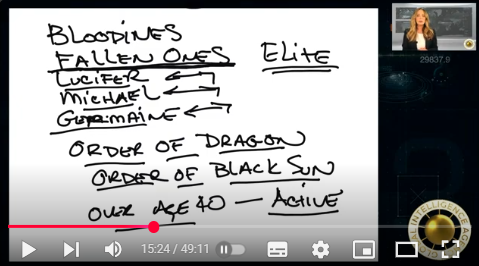 BLOODINES
FALLEN ONES ELITE
LUCIFER
MICHAEL
GERMAINE
ORDER OF DRAGON
ORDER OF BLACK SUN
OVER AGE 40 — ACTIVE
29837.9
15:24 / 49:11
GLOBAL INTELLIGENCE AGEN